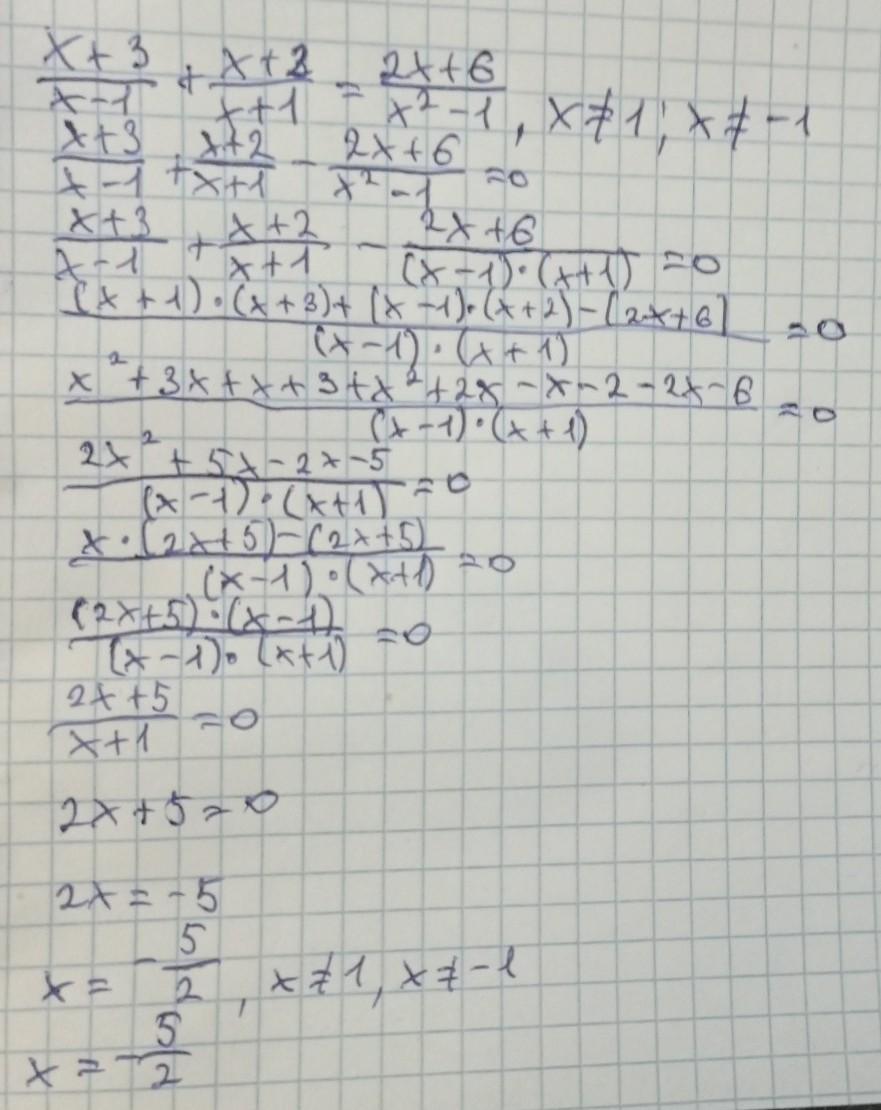 (x+3)/(x-1) + (x+2)/(x+1) = (2x+6)/(x²-1), x≠1; x≠-1
(x+3)/(x-1) + (x+2)/(x+1) - (2x+6)/(x²-1) = 0
(x+3)/(x-1) + (x+2)/(x+1) - (2x+6)/((x-1)·(x+1)) = 0
((x+1)·(x+3)+(x-1)·(x+2)-(2x+6))/((x-1)·(x+1)) = 0
(x²+3x+x+3+x²+2x-x-2-2x-6)/((x-1)·(x+1)) = 0
(2x²+5x-2x-5)/((x-1)·(x+1)) = 0
(x·(2x+5)-(2x+5))/((x-1)·(x+1)) = 0
((2x+5)·(x-1))/((x-1)·(x+1)) = 0
(2x+5)/(x+1) = 0
2x+5=0
2x=-5
x = -5/2, x≠1, x≠-1
x = -5/2